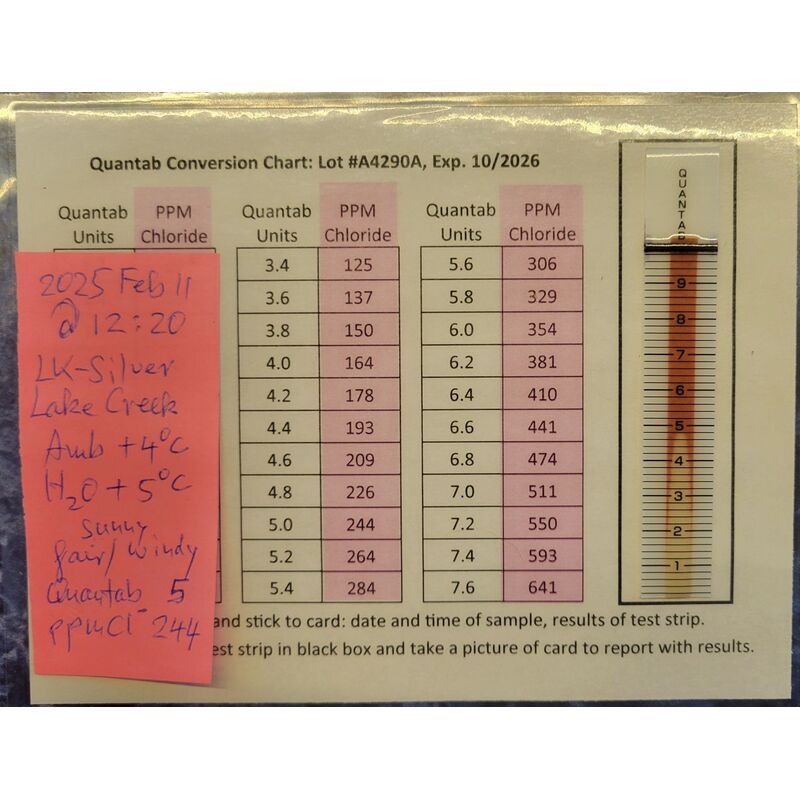 Quantab Conversion Chart: Lot #A4290A, Exp. 10/2026
Quantab Units PPM Chloride
Quantab Units PPM Chloride
3.4 125
3.6 137
3.8 150
4.0 164
4.2 178
4.4 193
4.6 209
4.8 226
5.0 244
5.2 264
5.4 284
Quantab Units PPM Chloride
5.6 306
5.8 329
6.0 354
6.2 381
6.4 410
6.6 441
6.8 474
7.0 511
7.2 550
7.4 593
7.6 641
2025 Feb 11
@ 12:20
LK-Silver
Lake Creek
Amb +4°C
H2O +5°C
sunny
fair/windy
Quantab 5
ppmCl⁻ 244
QUANTAB
9
8
7
6
5
4
3
2
1
and stick to card: date and time of sample, results of test strip.
est strip in black box and take a picture of card to report with results.